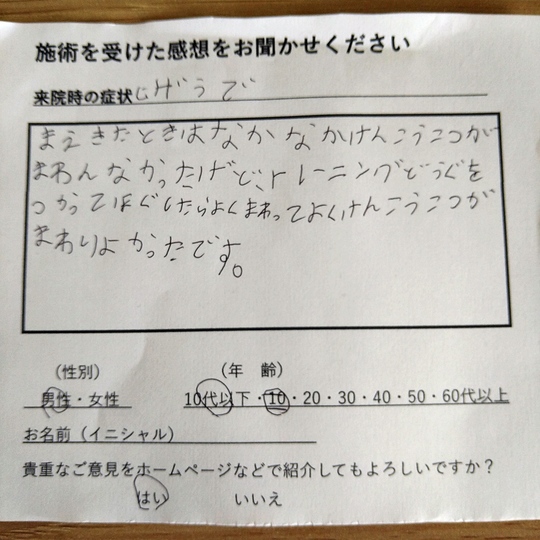 施術を受けた感想をお聞かせください
来院時の症状 じげうで
まえきたときはなかなかけんこうこつが
まわんなかったけど、トレーニングどうぐを
つかってほぐしたらよくまわってよくけんこうこつが
まわりよかったです。
（性別）（年 齢）
男性・女性 10代以下・10・20・30・40・50・60代以上
お名前（イニシャル）
貴重なご意見をホームページなどで紹介してもよろしいですか？
はい いいえ